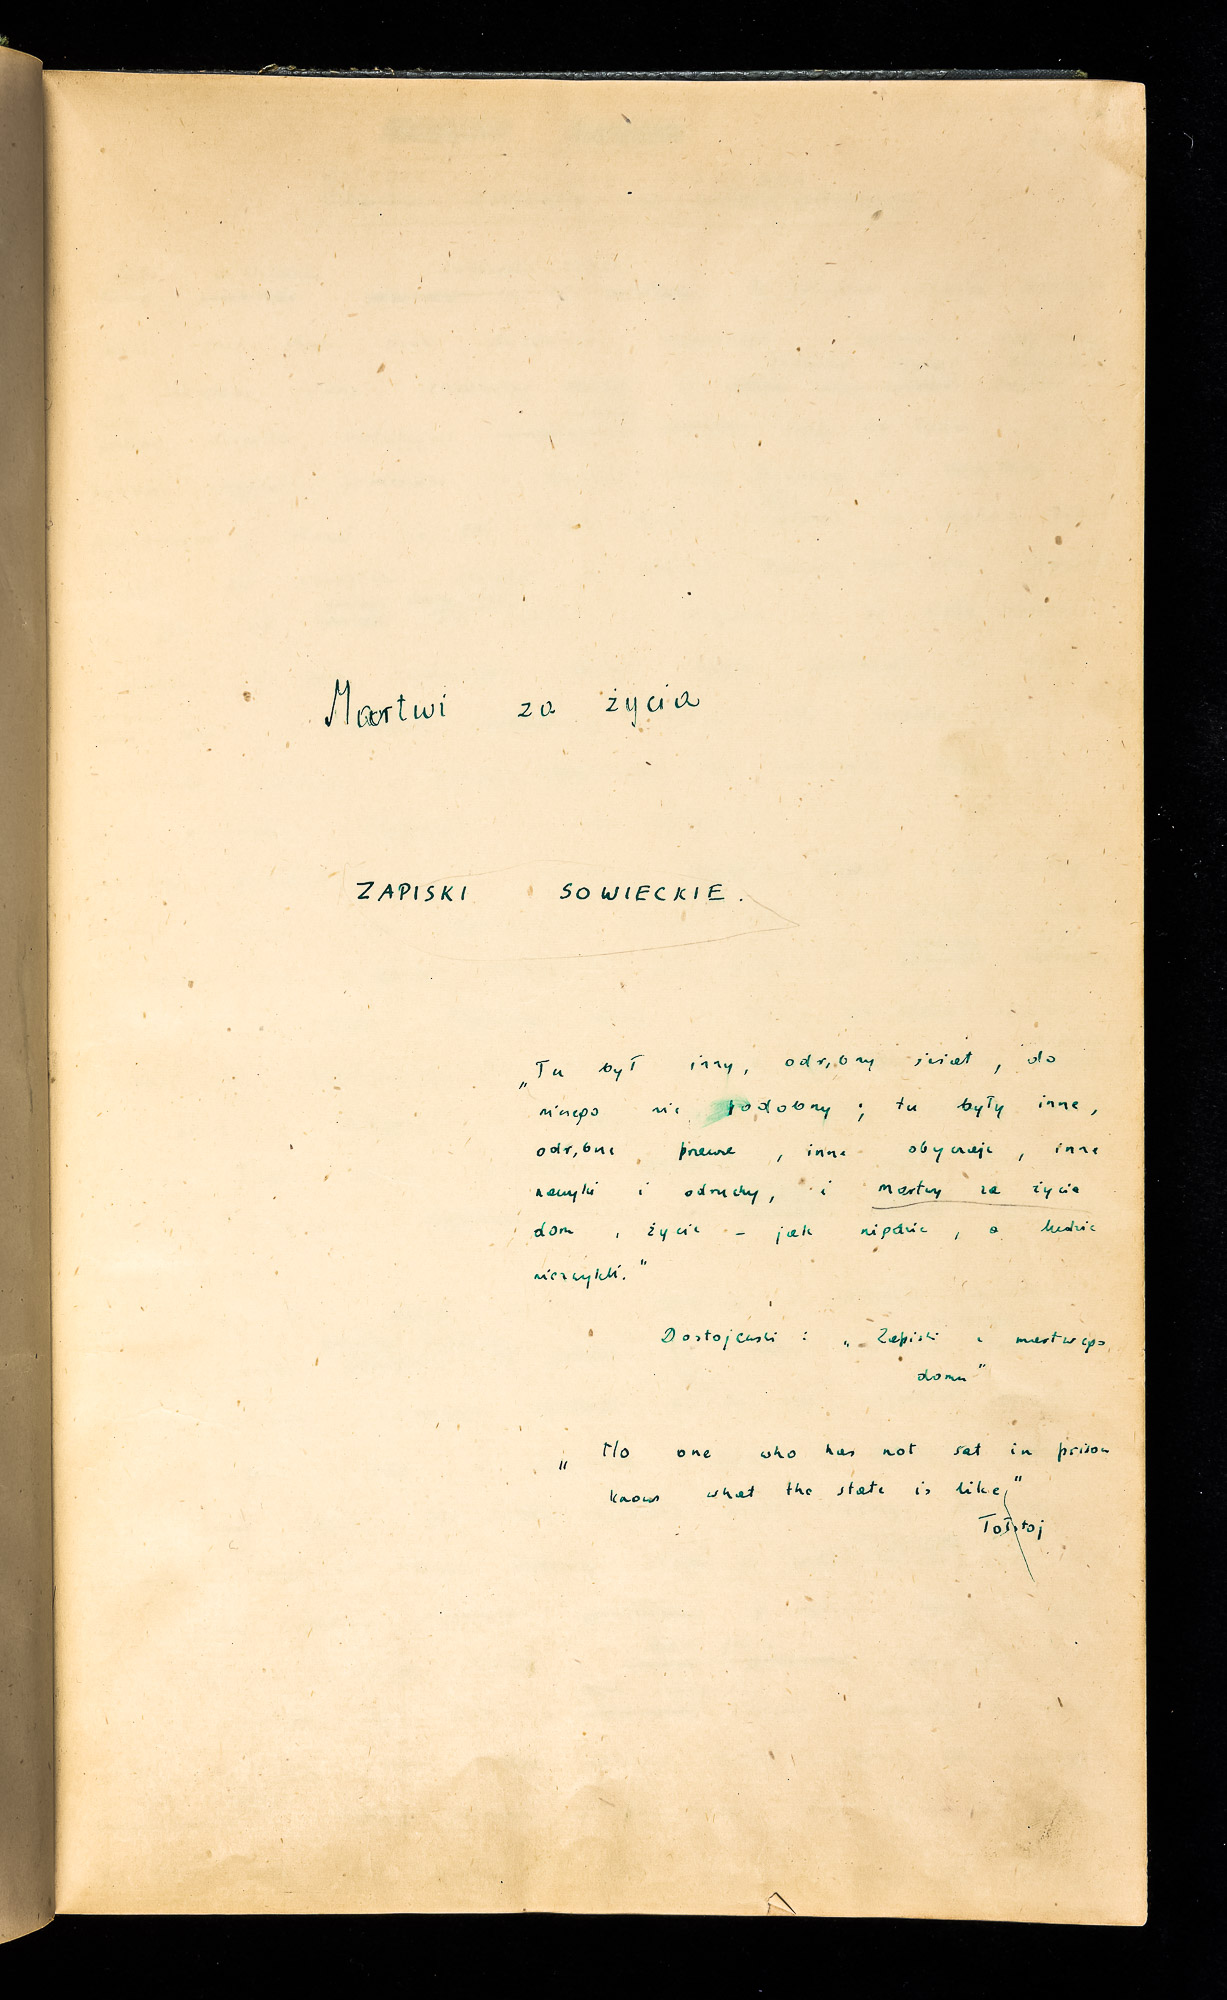 Martwi za życia
ZAPISKI SOWIECKIE.
„Tu był inny, odrębny świat, do
niczego nie podobny; tu były inne,
odrębne prawa, inne obyczaje, inne
nawyki i odruchy, i martwy za życia
dom, życie – jak nigdzie, a ludzie
niezwykli."
Dostojewski: „Zapiski z martwego
domu"
„No one who has not sat in prison
knows what the state is like"
Tołstoj